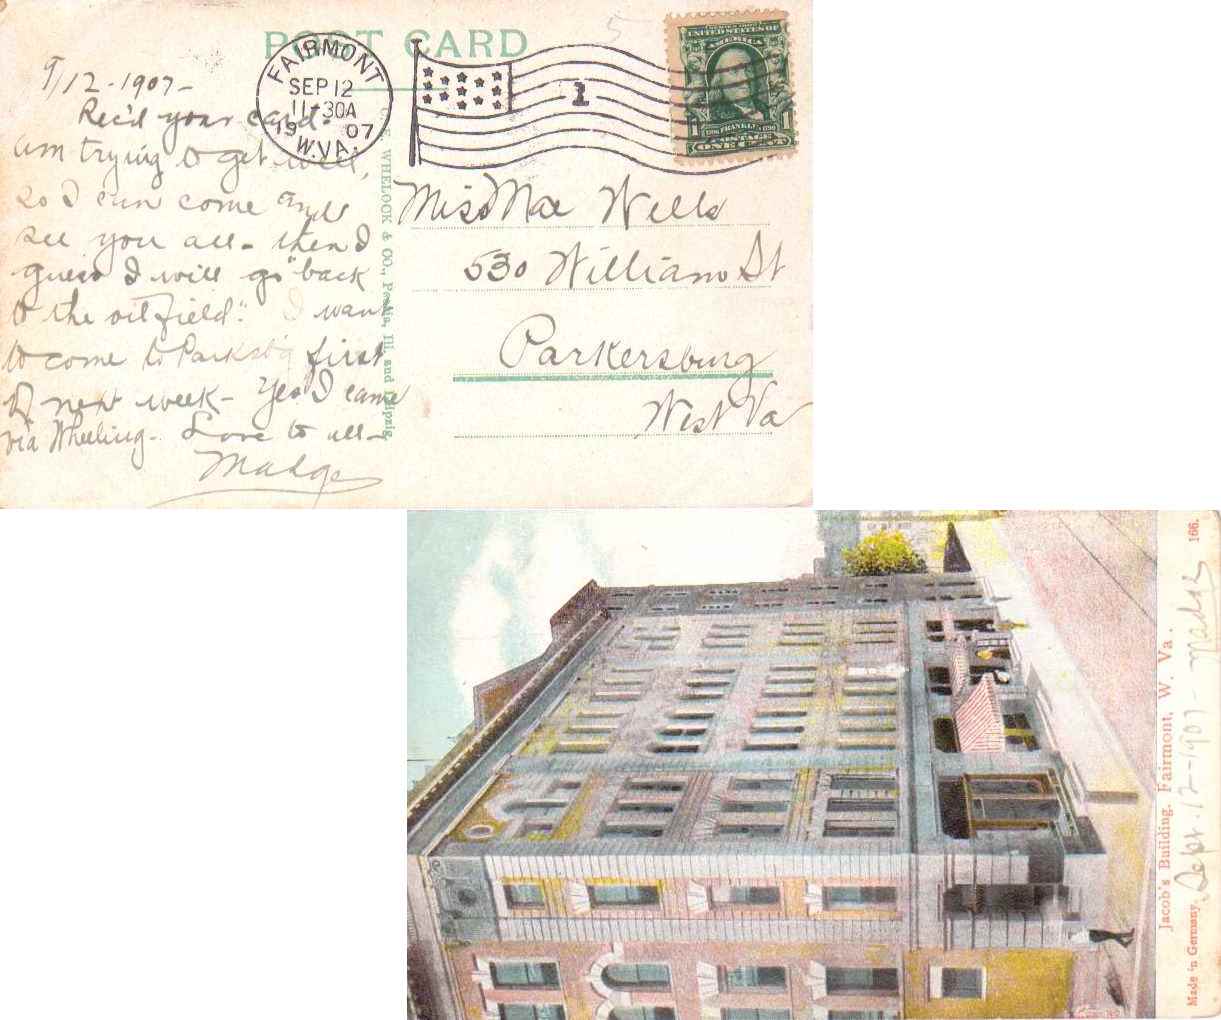 POST CARD
5
FAIRMONT
SEP 12
11-30A
19 07
W.VA.
1
UNITED STATES OF
AMERICA
1 FRANKLIN 1
POSTAGE
ONE CENT
9/12-1907-
Rec'd your card.
am trying to get well,
so I can come and
see you all - then I
guess I will go "back
to the oil field." I want
to come to Parksb'g first
of next week - Yes I came
via Wheeling - Love to all -
Madge
WHELOCK & CO., Peoria, Ill. and Leipzig
Miss Mae Wells
530 William St
Parkersburg
West Va
166.
Jacob's Building. Fairmont, W. Va.
Made in Germany.
Sept. 12-1907 - Madge